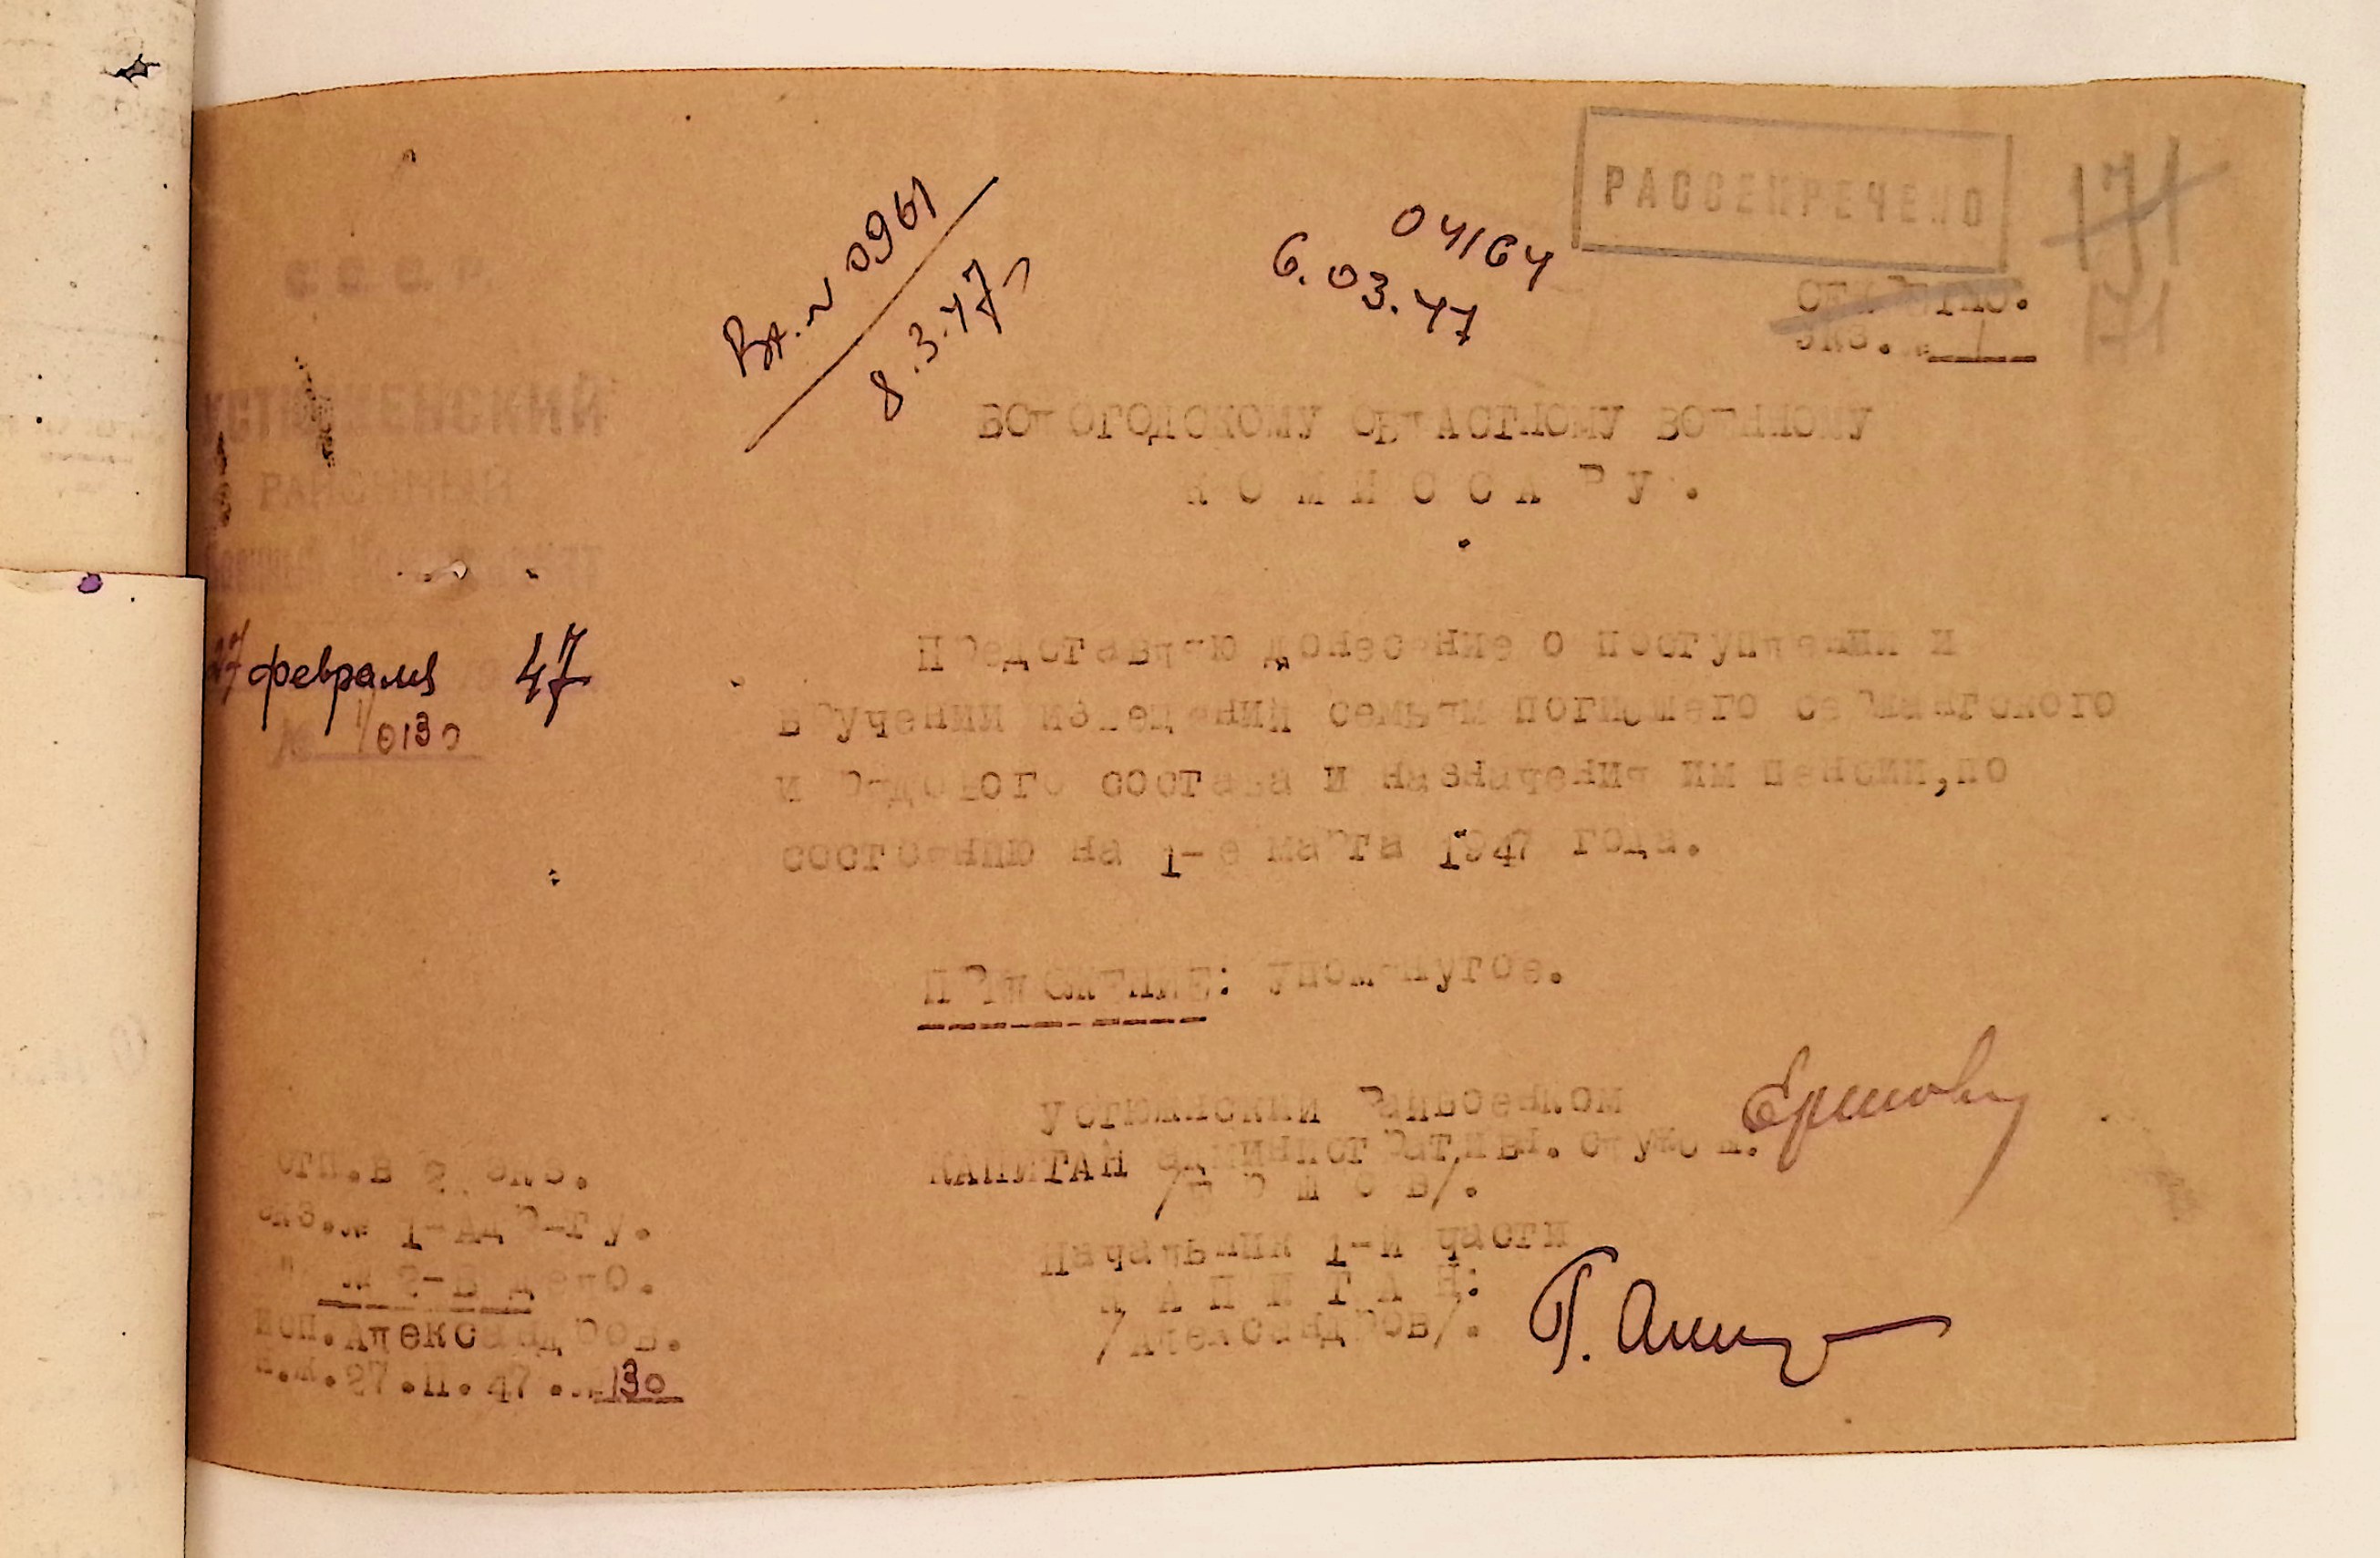 РАССЕКРЕЧЕНО
171
171
Вх. № 0961
8.3.47 г.
04164
6.03.47
СЕКРЕТНО.
Экз. № 1
С. С. С. Р.
УСТЮЖЕНСКИЙ
РАЙОННЫЙ
Военный Комиссариат
27 февраля 47
№ 1/0130
ВОЛОГОДСКОМУ ОБЛАСТНОМУ ВОЕННОМУ
К О М И С С А Р У .
Представляю донесение о поступлении и
вручении извещений семьям погибшего сержантского
и рядового состава и назначения им пенсии,по
состоянию на 1-е марта 1947 года.
ПРИЛОЖЕНИЕ: Упомянутое.
Устюженский Райвоенком
КАПИТАН административн. службы.
/Е р ш о в/.
Ершов
Начальник 1-й части
К А П И Т А Н:
/Александров/.
отп.в 2 экз.
экз.№ 1-Адр-ту.
№ 2-В дело.
исп.Александров.
27.II.47. 130